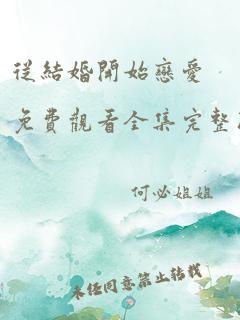 從結婚開始戀愛
免費觀看全集完整
何必姐姐
未任同意禁止轉載